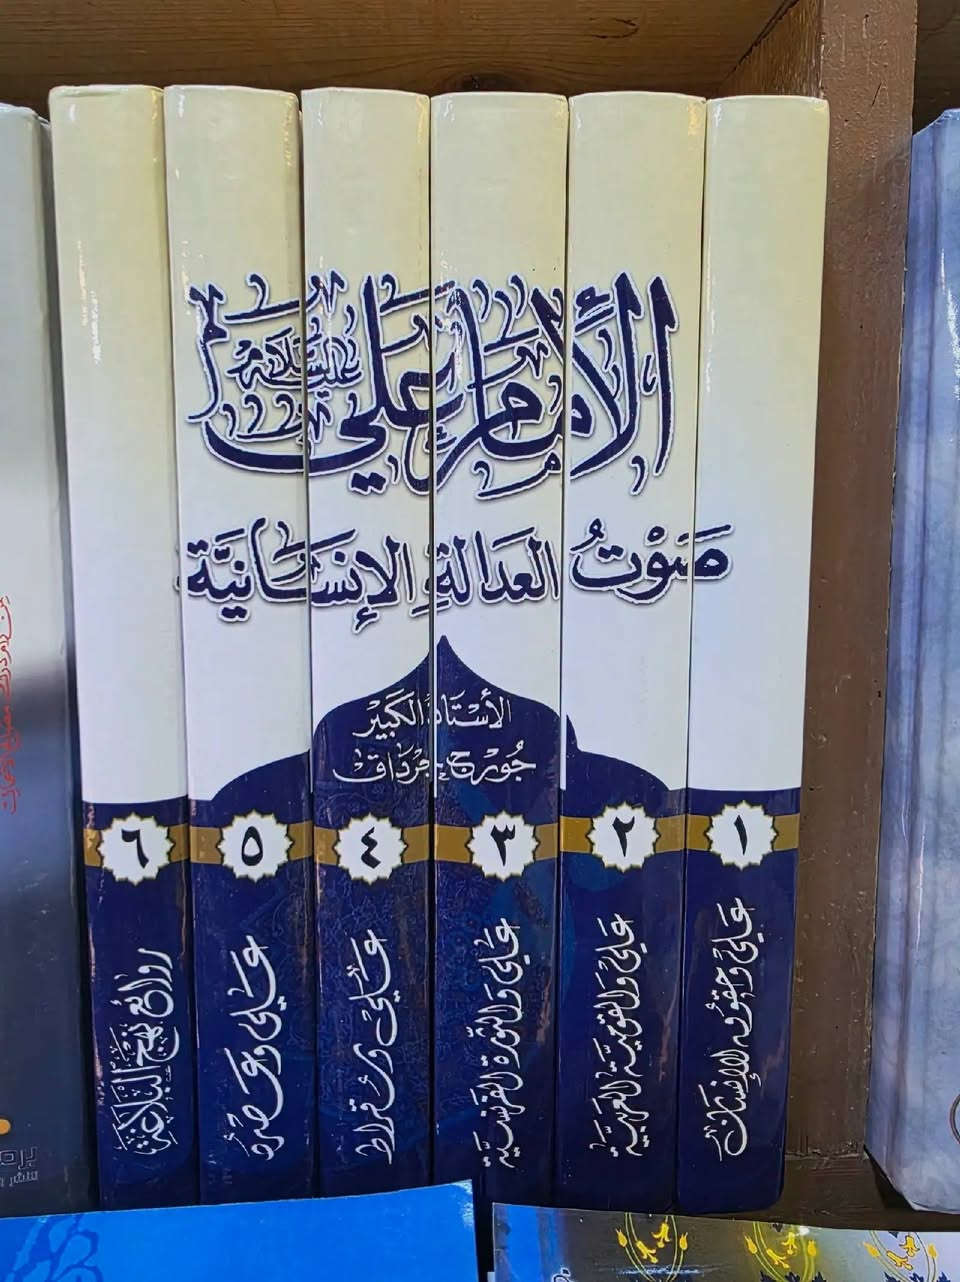 الإمام علي
عليه السلام
صَوْتُ العدالةِ الإنسانيَّة
الأستاذ الكبير
جورج جرداق
١
علي وحقوق الإنسان
٢
علي والقومية العربية
٣
علي والثورة الفرنسية
٤
علي وسقراط
٥
علي وعصره
٦
روائع نهج البلاغة